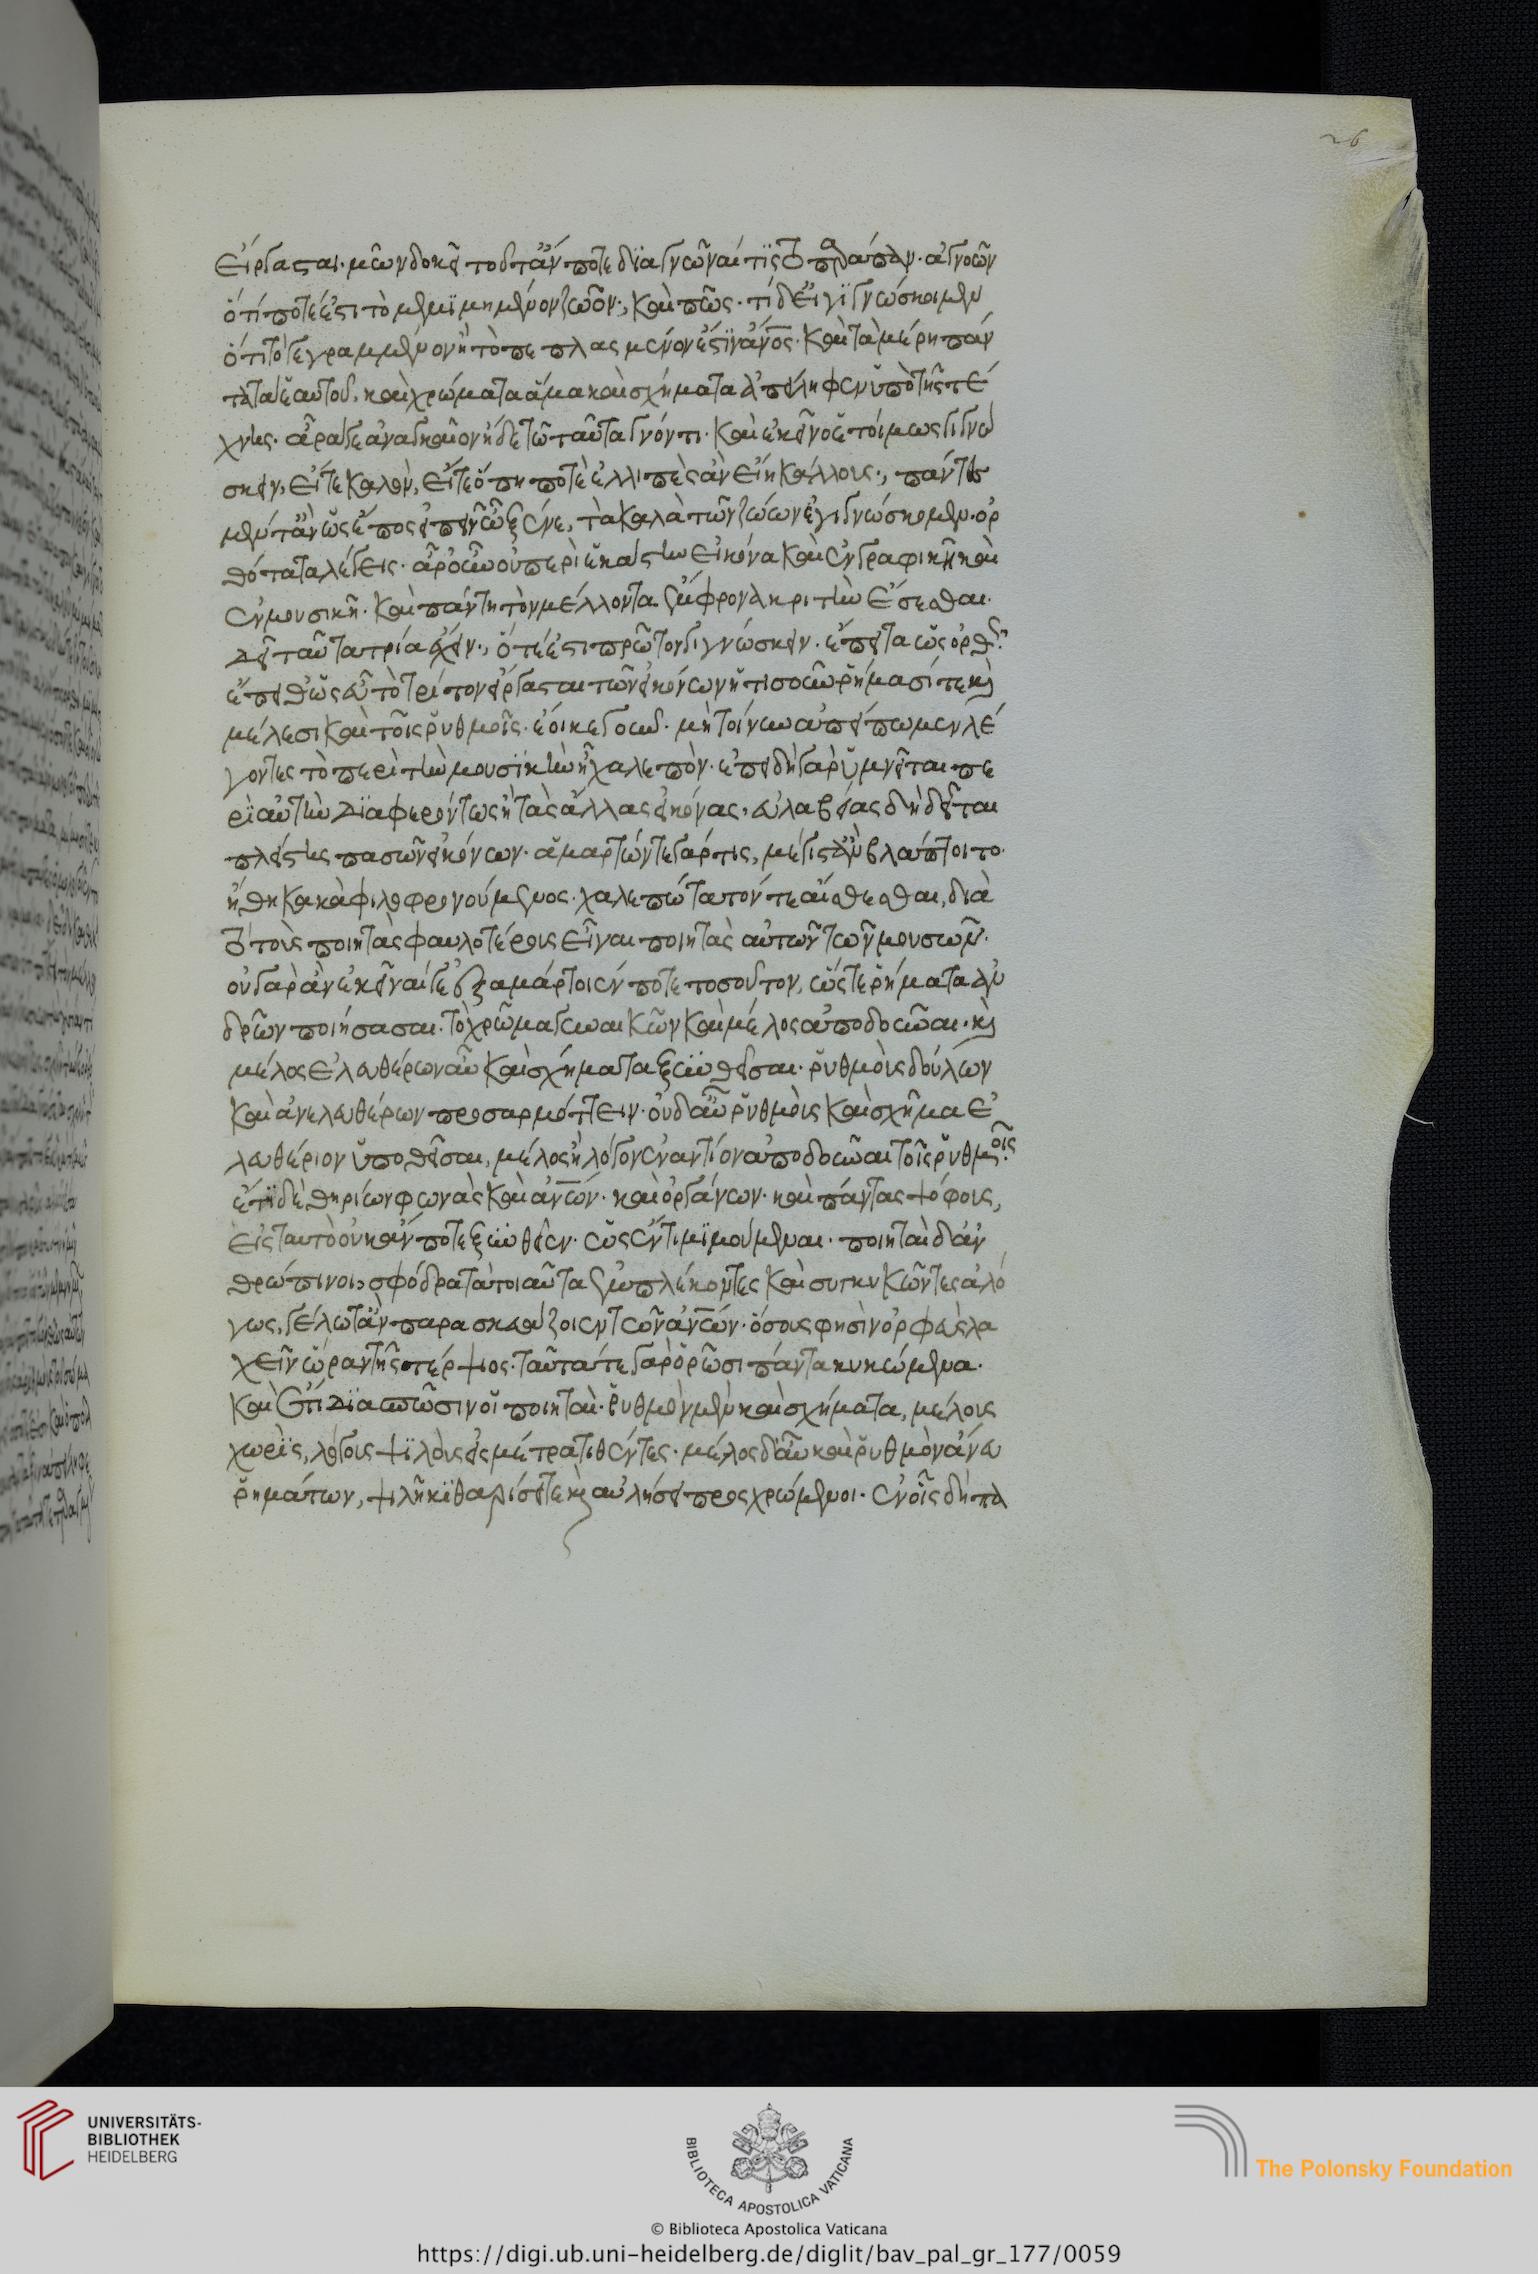 εἴργασται. μῶν δοκεῖ τοῦτ' ἄν ποτε διαγνῶναί τις τὸ παράπαν. ἀγνοῶν
ὅτι ποτέ ἐστι τὸ μεμιμημένον ζῶον; καὶ πῶς. τί δ' εἰ γιγνώσκοιμεν
ὅτι τὸ γεγραμμένον ἢ τὸ πεπλασμένον ἐστὶν ἄνος. καὶ τὰ μέρη πάν
τα τὰ ἑαυτοῦ, καὶ χρώματα ἅμα καὶ σχήματα ἀπείληφεν ὑπὸ τῆς τέ
χνης. ἆρά γε ἀναγκαῖον ἤδε τῶ ταῦτα γνόντι. καὶ ἐκεῖνο ἑτοίμως γιγνώ
σκειν, εἴτε καλὸν, εἴτε ὅπη ποτὲ ἐλλιπὲς ἂν εἴη κάλλους; πάντες
μέντ' ἂν ὡς ἔπος εἰπεῖν ὦ ξένε, τὰ καλὰ τῶν ζώων ἐγιγνώσκομεν. ὀρ
θότατα λέγεις. ἆρ' οὖν οὐ περὶ ἑκάστην εἰκόνα καὶ ἐν γραφικῆ καὶ
ἐν μουσικῆ. καὶ πάντη τὸν μέλλοντα ἔμφρονα κριτὴν ἔσεσθαι.
δεῖ ταῦτα τρία ἔχειν; ὅ τέ ἐστι πρῶτον γιγνώσκειν. ἔπειτα ὡς ὀρθῶς.
ἔπειθ' ὡς εὖ τὸ τρίτον εἴργασται τῶν εἰκόνων ἡτισοῦν ῥήμασί τε καὶ
μέλεσι καὶ τοῖς ῥυθμοῖς. ἔοικε γοῦν. μὴ τοίνυν ἀπείπωμεν λέ
γοντες τὸ περὶ τὴν μουσικὴν ᾗ χαλεπὸν. ἐπειδὴ γὰρ ὑμνεῖται πε
ρὶ αὐτὴν διαφερόντως ἢ τὰς ἄλλας εἰκόνας, εὐλαβείας δὴ δεῖται
πλείστης πασῶν εἰκόνων. ἁμαρτών τε γάρ τις, μέγιστ' ἂν βλάπτοιτο.
ἤθη κακὰ φιλοφρονούμενος. χαλεπώτατόν τε αἰσθεσθαι, διὰ
τὸ τοὺς ποιητὰς φαυλοτέρους εἶναι ποιητὰς αὐτῶν τῶν μουσῶν.
οὐ γὰρ ἂν ἐκεῖναί γε ἐξαμάρτοιέν ποτε τοσοῦτον, ὥστε ῥήματα ἀν
δρῶν ποιήσασαι. τὸ χρῶμα γυναικῶν καὶ μέλος ἀποδοῦναι. καὶ
μέλος ἐλευθέρων αὖ καὶ σχήματα ξυνθεῖσαι. ῥυθμοὺς δούλων
καὶ ἀνελευθέρων προσαρμόττειν. οὐδ' αὖ ῥυθμοὺς καὶ σχῆμα ἐ
λευθέριον ὑποθεῖσαι, μέλος ἢ λόγον ἐναντίον ἀποδοῦναι τοῖς ῥυθμοῖς.
ἔτι δὲ θηρίων φωνὰς καὶ ἀνῶν. καὶ ὀργάνων. καὶ πάντας ψόφους,
εἰς ταυτὸ οὐκ ἄν ποτε ξυνθεῖεν. ὡς ἕν τι μιμούμεναι. ποιηταὶ δ' ἀν
θρώπινοι, σφόδρα τὰ τοιαῦτα ἐμπλέκοντες καὶ συγκυκῶντες ἀλό
γως, γέλωτ' ἂν παρασκευάζοιεν τῶν ἀνῶν. ὅσους φησὶν ὀρφεὺς λα
χεῖν ὥραν τῆς τέρψιος. ταῦτά τε γὰρ ὁρῶσι πάντα κυκώμενα.
καὶ ἔτι διασπῶσιν οἱ ποιηταὶ. ῥυθμὸν μὲν καὶ σχήματα, μέλους
χωρὶς, λόγους ψιλοὺς εἰς μέτρα τιθέντες. μέλος δ' αὖ καὶ ῥυθμὸν ἄνευ
ῥημάτων, ψιλῆ κιθαρίσει τε καὶ αὐλήσει προςχρώμενοι. ἐν οἷς δὴ πα
26
UNIVERSITÄTS-
BIBLIOTHEK
HEIDELBERG
BIBLIOTECA APOSTOLICA VATICANA
The Polonsky Foundation
© Biblioteca Apostolica Vaticana
https://digi.ub.uni-heidelberg.de/diglit/bav_pal_gr_177/0059